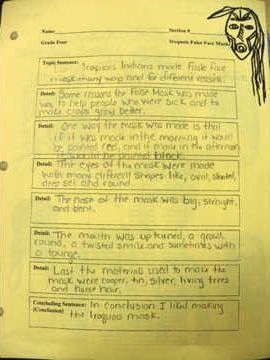 Name Section #
Grade Four Iroquois False Face Mask
Topic Sentence: Iroquois Indians made False Face
mask many way and for different reason.
Detail: Some reasons the False Mask was made
was to help people who were sick and to
make crops grow better.
Detail: One way the mask was made is that
if it was made in the morning it would
be painted red, and if made in the afternoon
it would be painted black.
Detail: The eyes of the mask were made
with many different shapes like, oval, slanted,
deep set and round.
Detail: The nose of the mask was big, straight,
and bent.
Detail: The mouth was upturned, a growl,
round, a twisted smile and sometimes with
a tounge.
Detail: Last the materials used to make the
mask were coper, tin, silver, living trees
and horse hair.
Concluding Sentence: In conclusion I liked making
(Conclusion) the Iroquois mask.